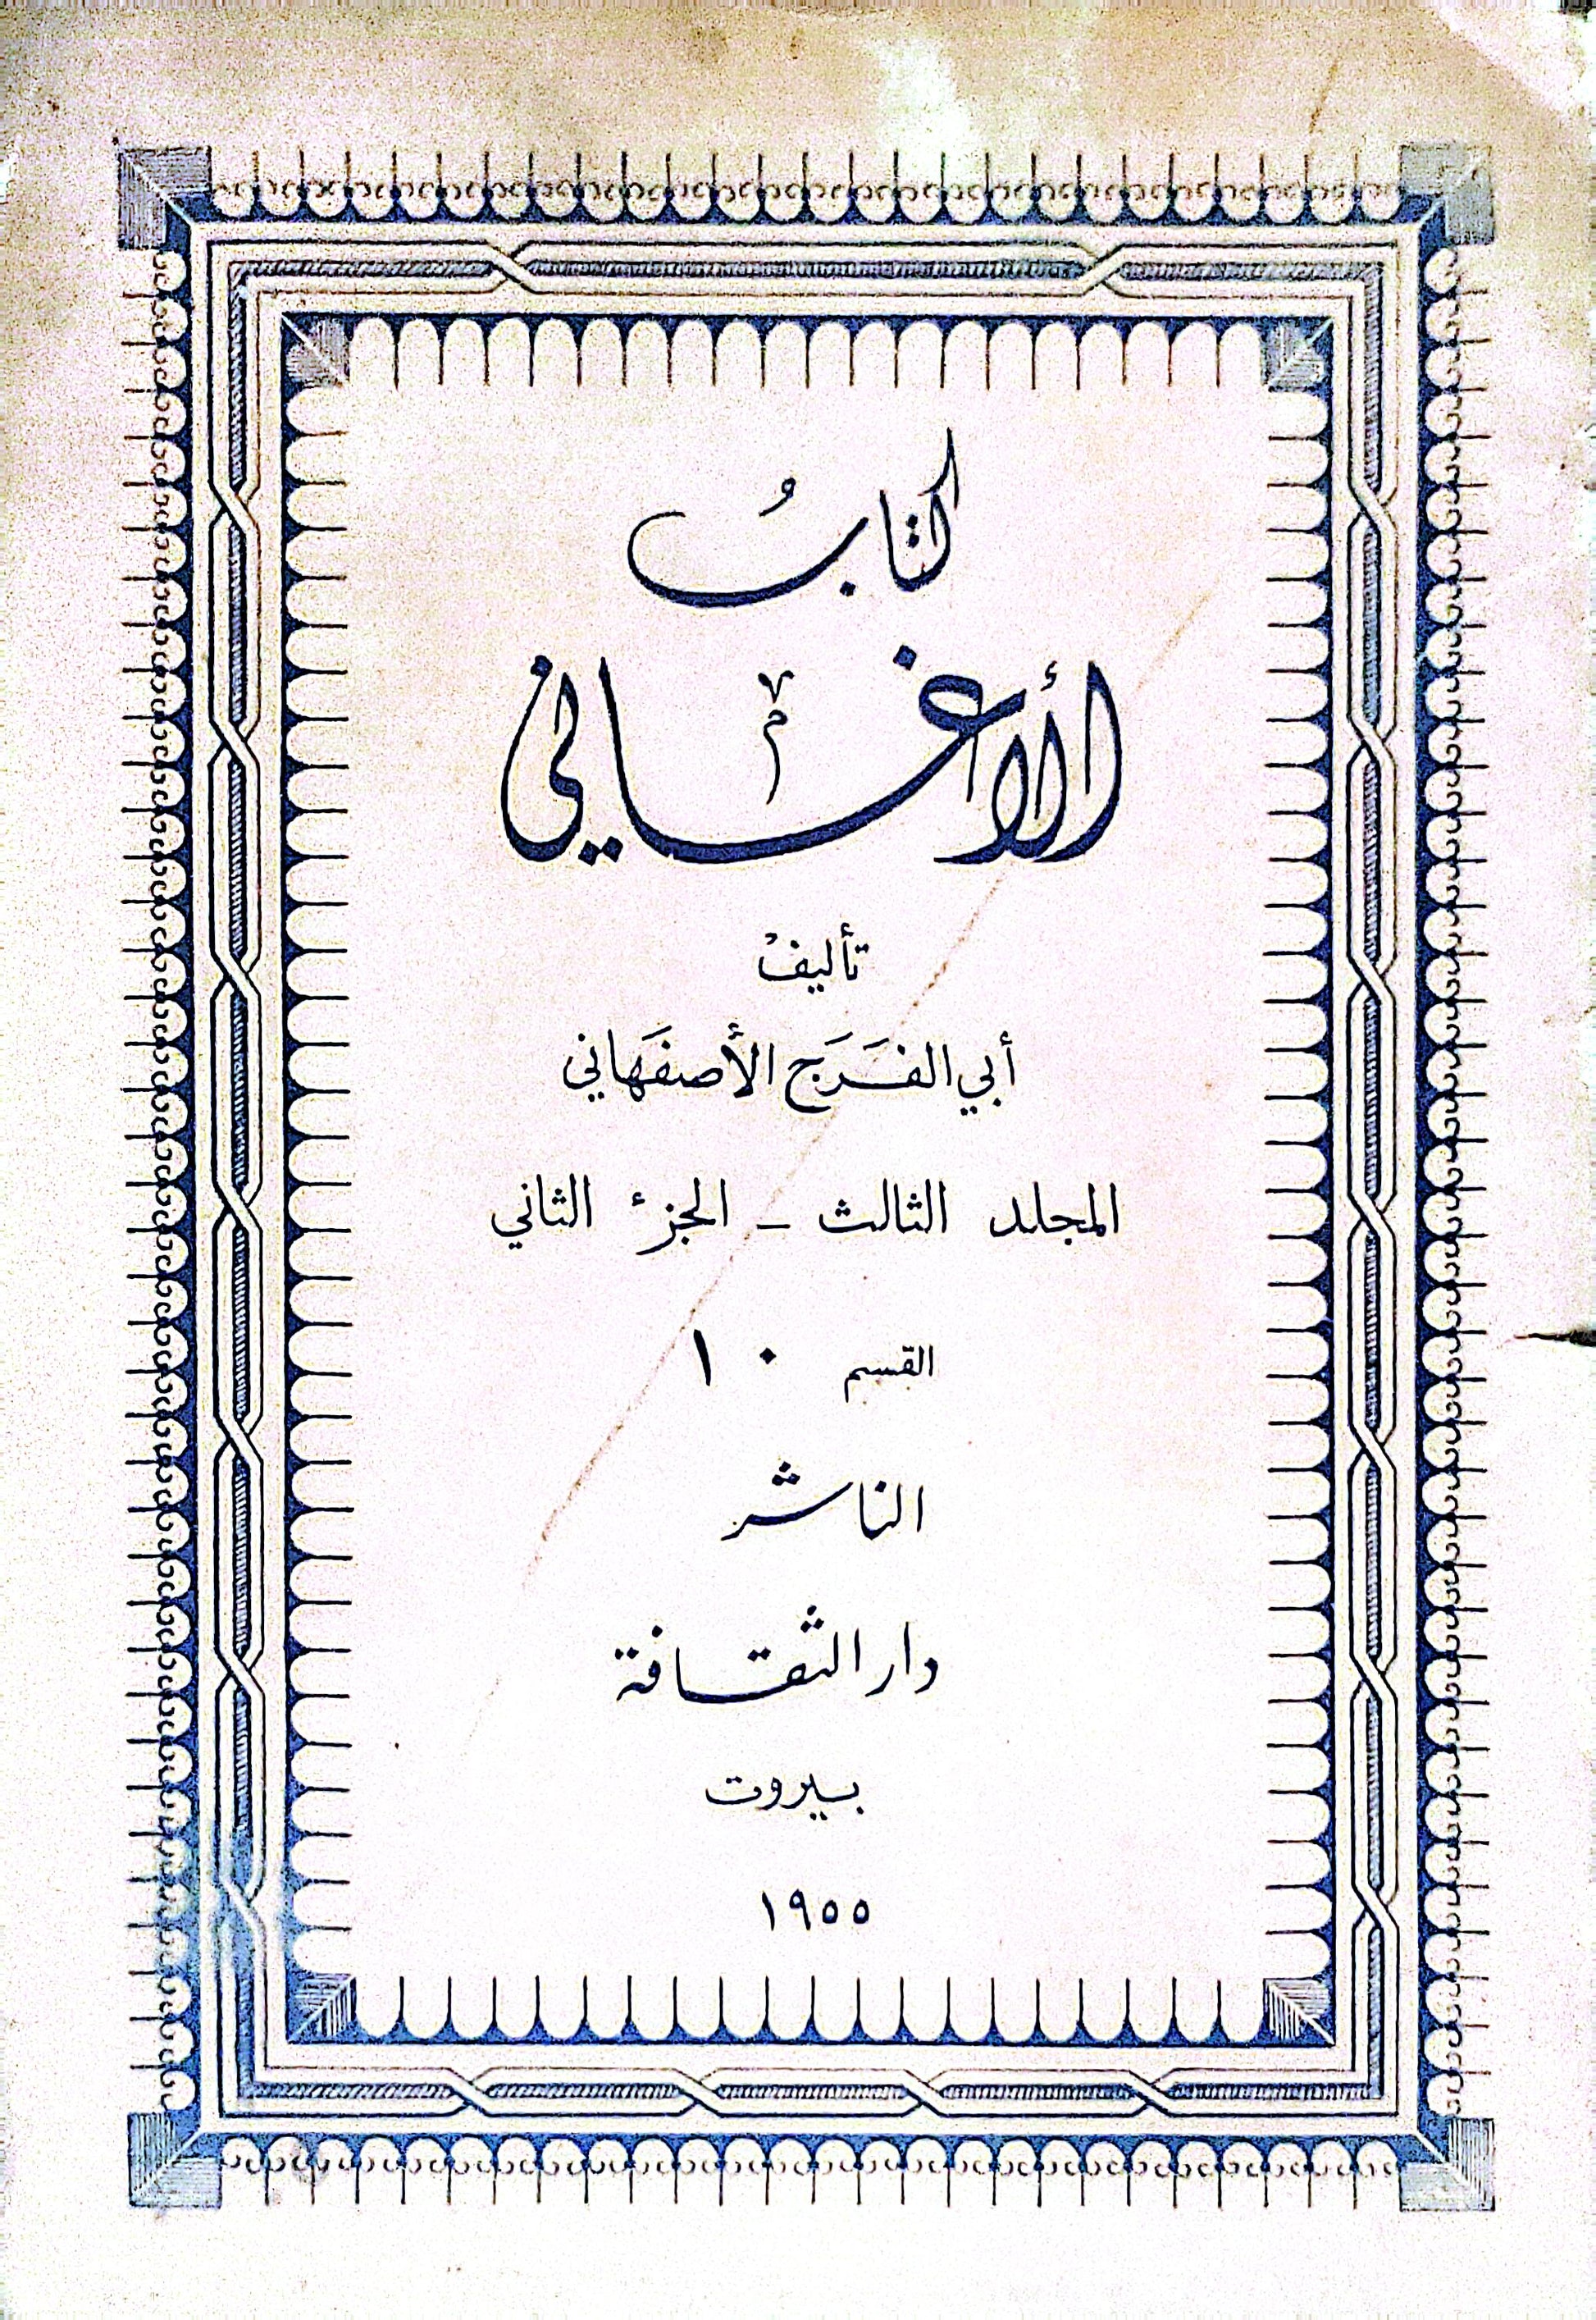 كتابُ
الأغاني
تأليفْ
أبي الفَرَج الأصفَهاني
المجلد الثالث – الجزء الثاني
القسم ١٠
الناشر
دار الثقافة
بيروت
١٩٥٥